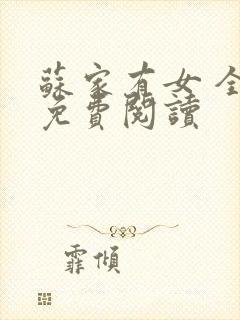 蘇家有女 全
免費閱讀
霏傾